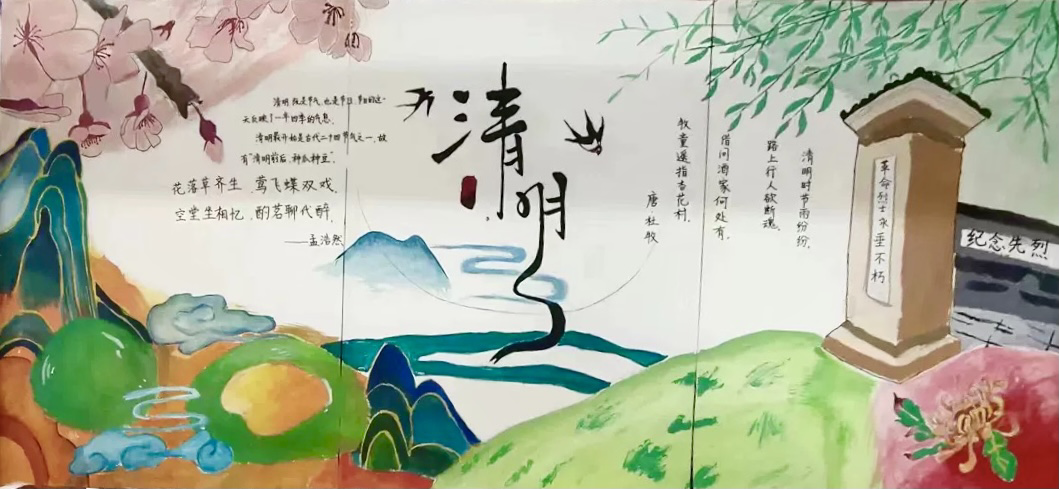 清明既是节气,也是节日,节日的这一
天反映了一年四季的气息.
清明最开始是古代二十四节气之一,故
有"清明前后,种瓜种豆".
花落草齐生,莺飞蝶双戏.
空堂坐相忆,酌茗聊代醉.
——孟浩然
清明
清明时节雨纷纷,
路上行人欲断魂.
借问酒家何处有,
牧童遥指杏花村.
唐·杜牧
革命烈士永垂不朽
纪念先烈